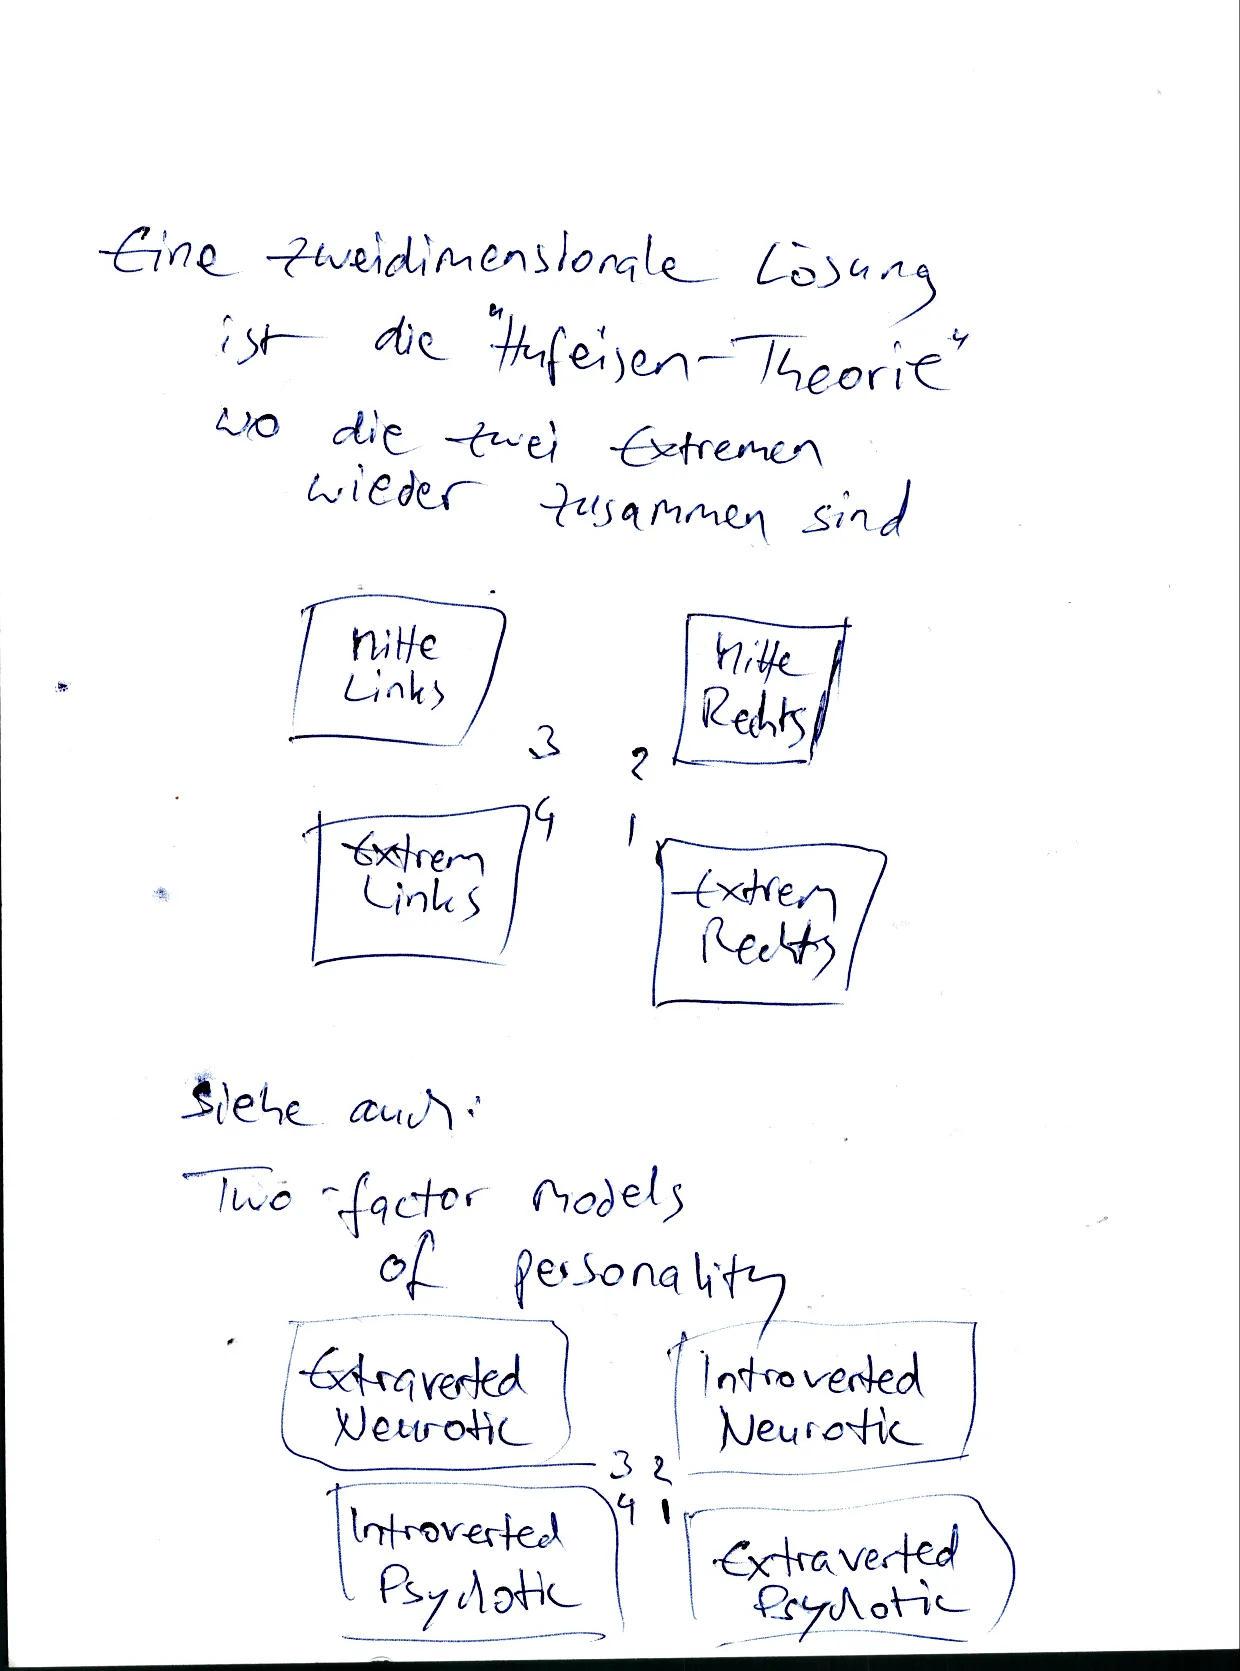 Eine zweidimensionale Lösung
ist die "Hufeisen-Theorie"
wo die zwei Extremen
wieder zusammen sind
Mitte
Links
Mitte
Rechts
3 2
4 1
Extrem
Links
Extrem
Rechts
Siehe auch:
Two-factor models
of personality
Extraverted
Neurotic
Introverted
Neurotic
3 2
4 1
Introverted
Psychotic
Extraverted
Psychotic